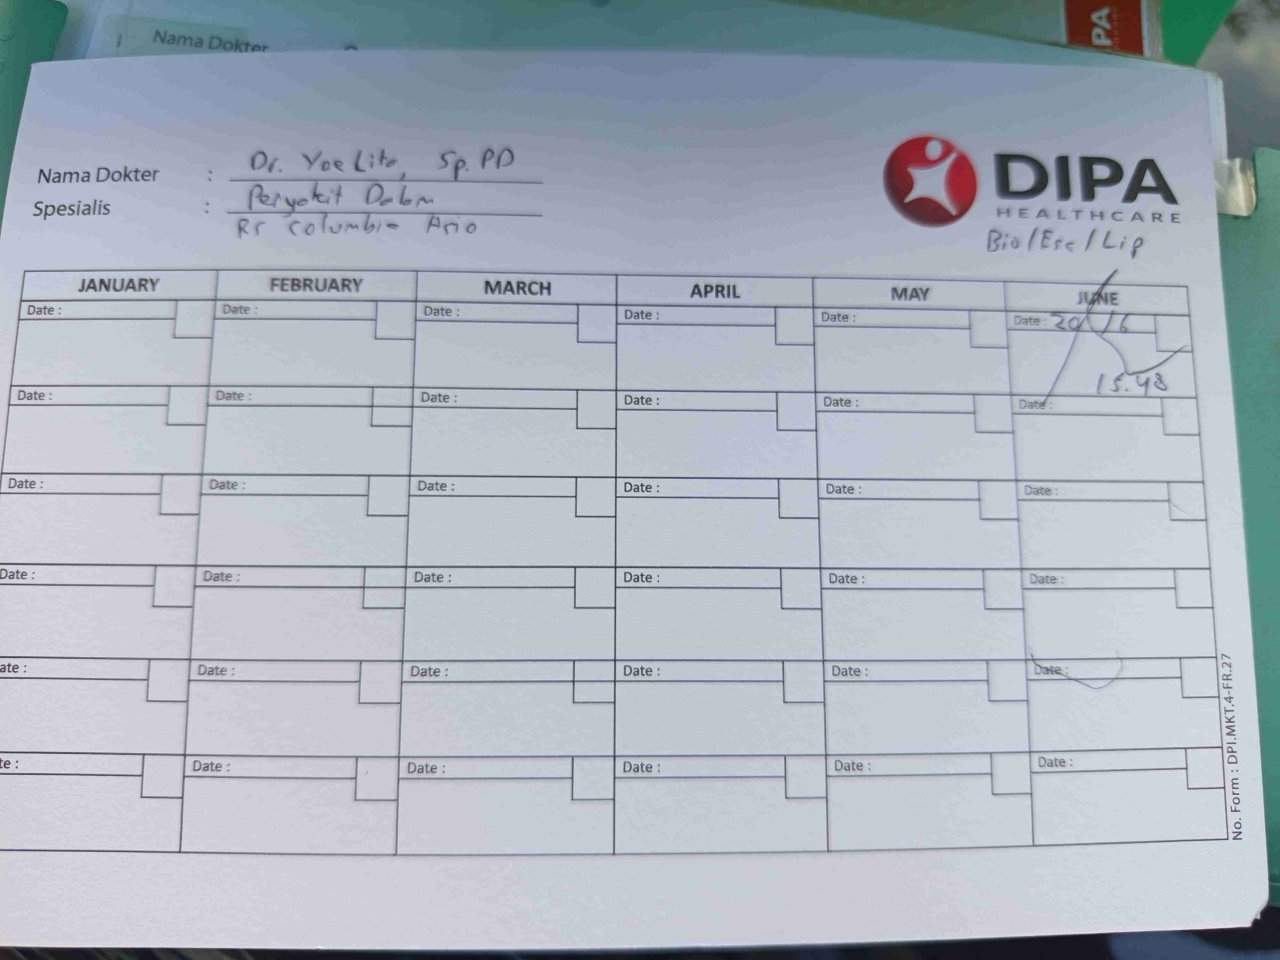 Nama Dokter
PA
Nama Dokter : Dr. Yoe Lito, Sp.PD
Spesialis : Penyakit Dalam
RS Columbia Asia
DIPA
HEALTHCARE
Bio/Ese/Lip
JANUARY FEBRUARY MARCH APRIL MAY JUNE
Date : Date : Date : Date : Date : Date : 20/6
15.48
Date : Date : Date : Date : Date : Date :
Date : Date : Date : Date : Date : Date :
Date : Date : Date : Date : Date : Date :
ate : Date : Date : Date : Date : Date :
te : Date : Date : Date : Date : Date :
No. Form : DPI.MKT.4-FR.27